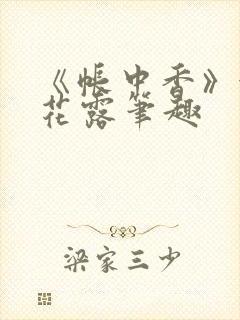 《帐中香》
花露笔趣
梁家三少